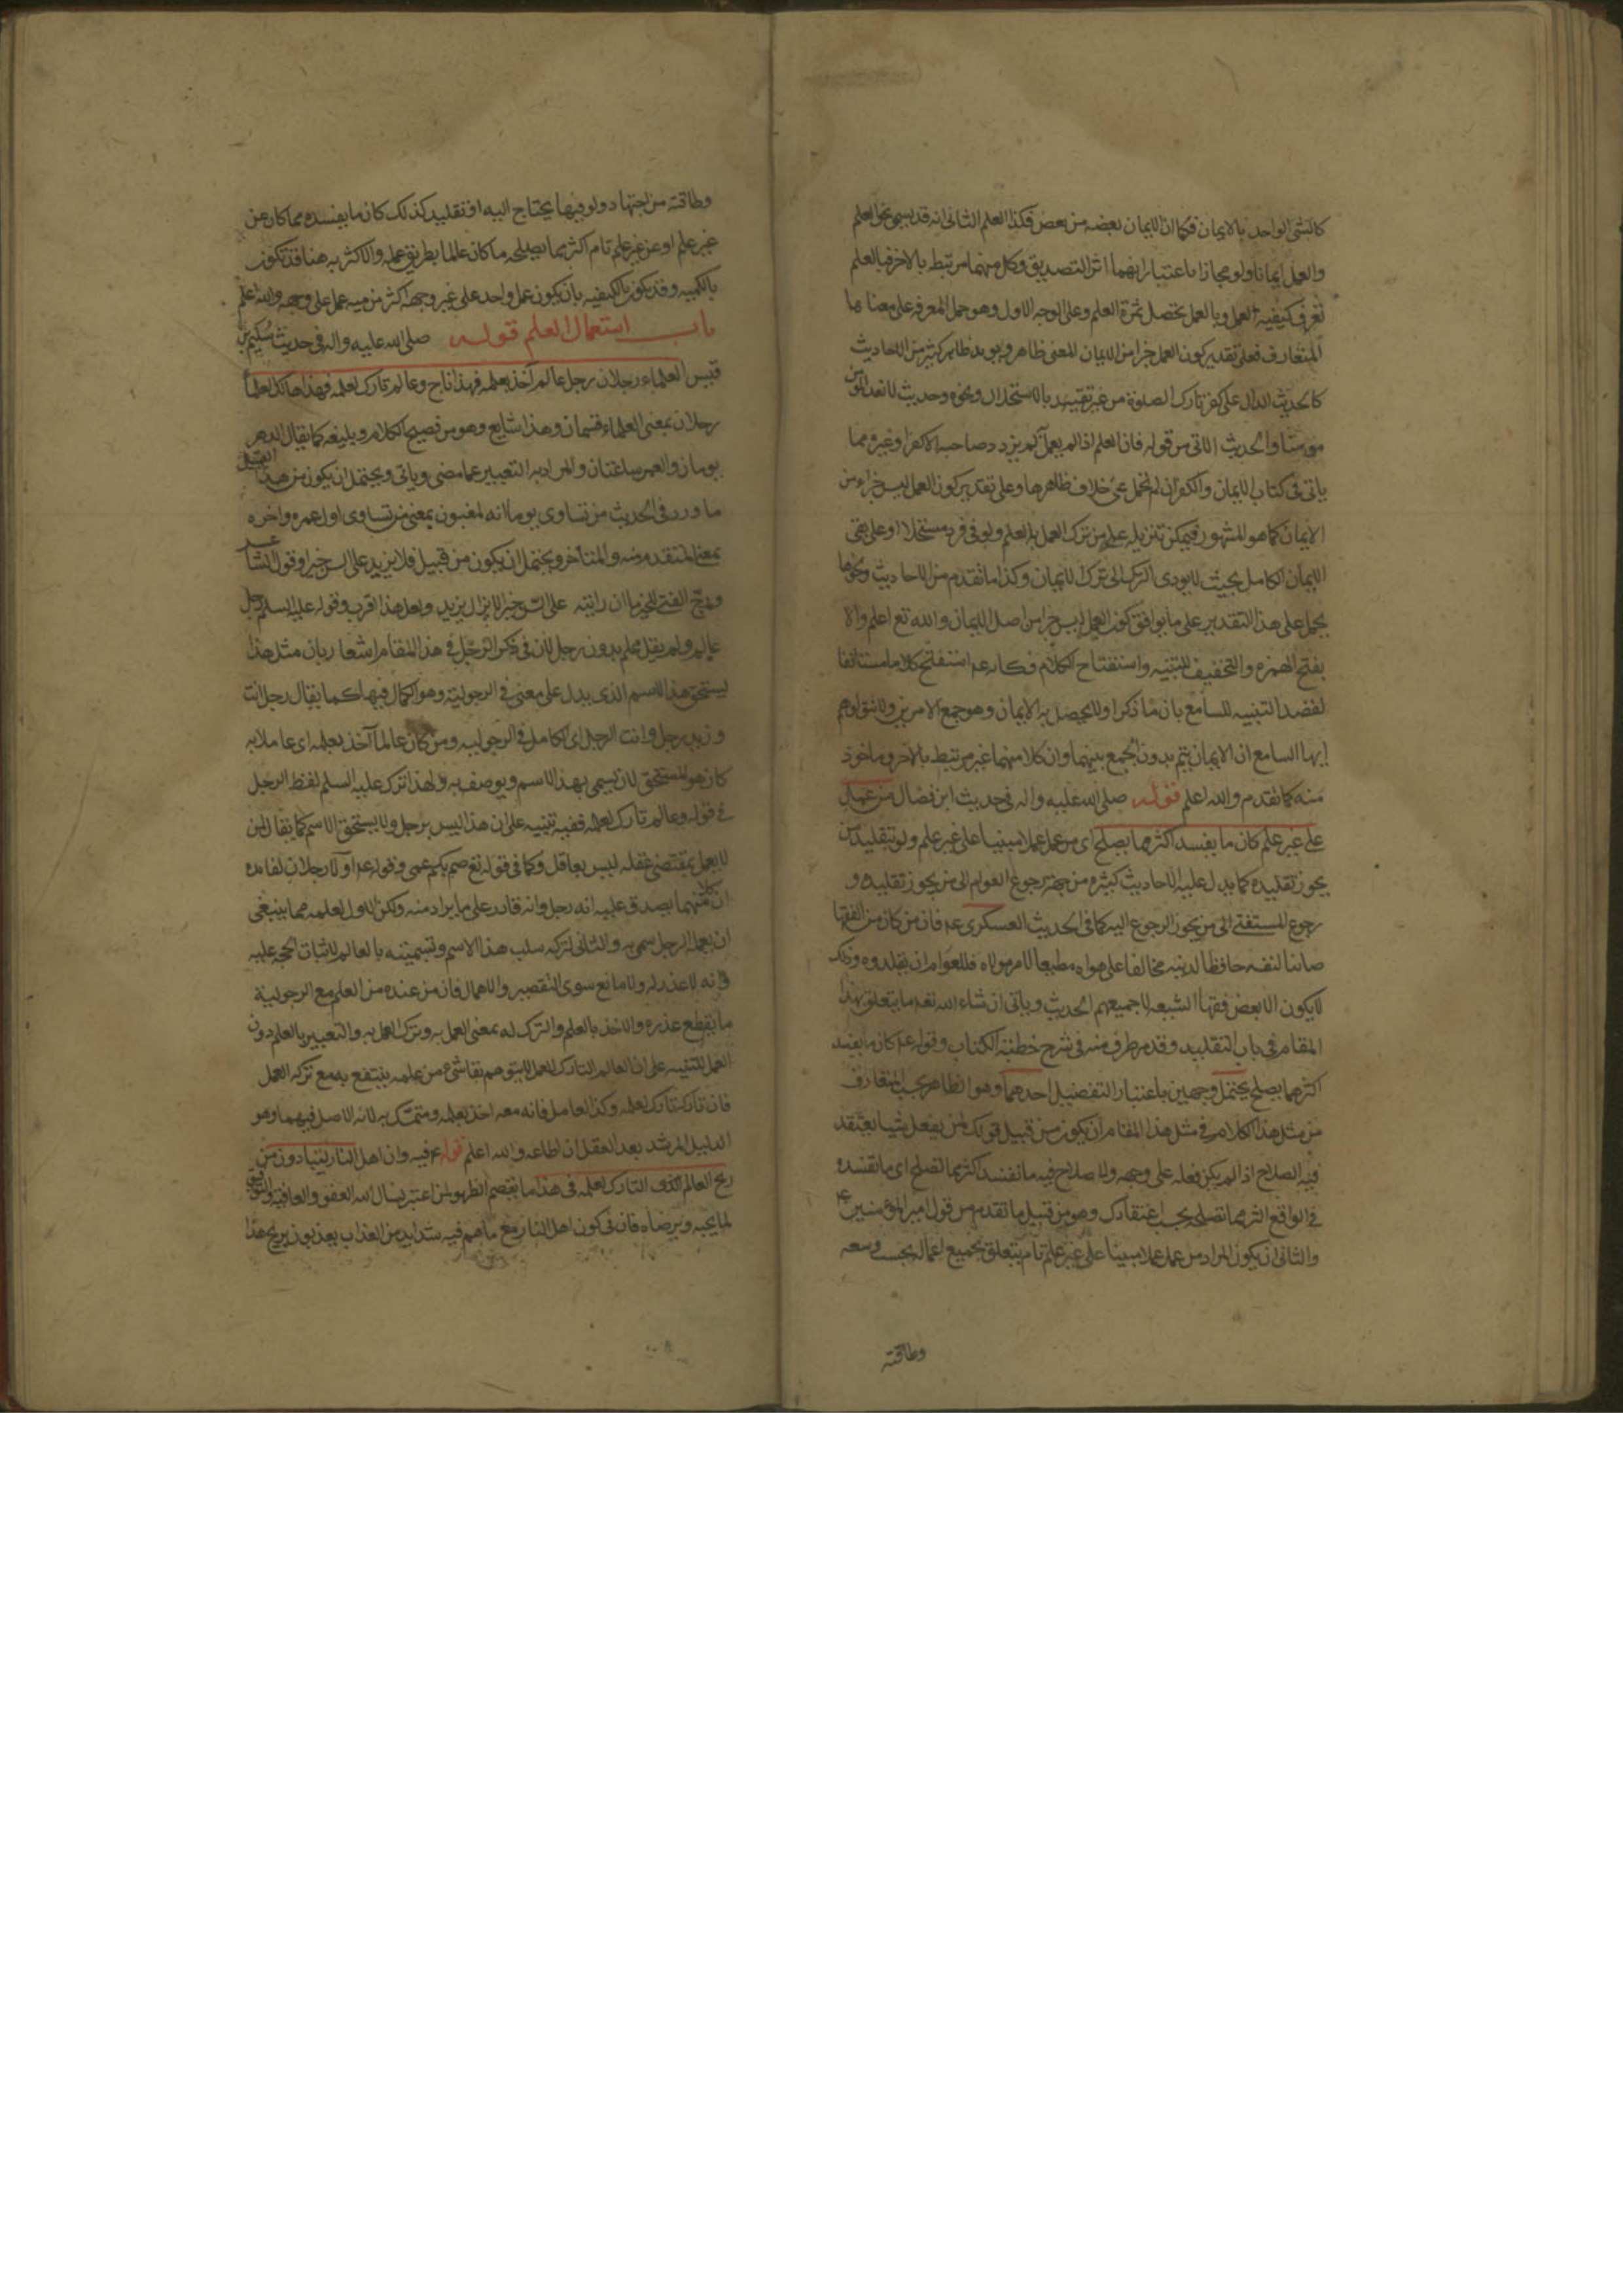 كالشئ الواحد بالايمان فكما ان الايمان بعضه من بعض فكذا العلم الثانى انه قد يسمى نحو العلم
والعمل ايمانا ولو مجازا باعتبار انهما اثر التصديق وكل منهما مرتبط بالاخر فبالعلم
تعرف كيفية العمل وبالعمل تحصل ثمرة العلم وعلى الوجه الاول وهو حمل المعرفه على معناها
المتعارف فعلى تقدير كون العمل جزا من الايمان المعنى ظاهر ويويده ظاهر كثير من الاحاديث
كالحديث الدال على كفر تارك الصلوة من غير تقييد بالاستحلال ونحوه وحديث
مومنا والحديث الاتى من قوله فان العلم اذا لم يعمل به لم يزدد صاحبه الا كفرا وغيره مما
ياتى فى كتاب الايمان والكفر ان لم نحمل على خلاف ظاهرها وعلى تقدير كون العمل ليس جزاء من
الايمان كما هو المشهور فيمكن تنزيله على من ترك العمل بالعلم ولو فى فرد مستحلا او على نفى
الايمان الكامل بحيث لا يودى الترك الى ترك الايمان وكذا ما تقدم من الاحاديث ونحوها
يحمل على هذا التقدير على ما يوافق كون العمل ليس جزا من اصل الايمان والله تع اعلم والا
بفتح الهمزه والتخفيف للتنبيه واستفتاح الكلام فكانه ع استفتح كلاما مستانفا
لقصد التنبيه للسامع بان ما ذكر اولا يحصل به الايمان وهو جمع الامرين ولا تتوهم
ايها السامع ان الايمان يتم بدون الجمع بينهما وان كلا منهما غير مرتبط بالاخر وماخوذ
منه كما تقدم والله اعلم قوله صلى الله عليه واله فى حديث ابن فضال من عمل
على غير علم كان ما يفسد اكثر مما يصلح اى من عمل عملا مبنيا على غير علم ولو بتقليد من
يجوز تقليده كما يدل عليه الاحاديث كثيره من جهة رجوع العوام الى من يجوز تقليده و
رجوع المستفتى الى من يجوز الرجوع اليه كما فى الحديث العسكرى ع فان من كان من الفقها
صائنا لنفسه حافظا لدينه مخالفا على هواه مطيعا لامر مولاه فللعوام ان يقلدوه وذلك
لا يكون الا بعض فقها الشيعه لا جميعهم الحديث وياتى ان شاء الله تعه ما يتعلق بهذا
المقام فى باب التقليد وقد مر طرف منه فى شرح خطبة الكتاب وقوله ع كان ما يفسد
اكثر مما يصلح يحتمل وجهين باعتبار التفضيل احدهما وهو الظاهر بحسب المتعارف
من مثل هذا الكلام فى مثل هذا المقام ان يكون من قبيل قولك لمن يفعل شيئا يعتقد
فيه الصلاح اذا لم يكن فعله على وجهه ولا صلاح فيه ما تفسد اكثر مما تصلح اى ما تفسده
فى الواقع اكثر مما تصلح بحسب اعتقادك وهو من قبيل ما تقدم من قول امير المؤمنين ع
والثانى ان يكون المراد من عمل عملا مبنيا على غير علم تام يتعلق بجميع اعماله بحسب وسعه
وطاقته
وطاقته من اجتهاد ولو فيها يحتاج اليه او تقليد كذلك كان ما يفسده مما كان عن
غير علم او عن غير علم تام اكثر مما يصلحه ما كان عالما بطريق عمله والاكثريه هنا قد تكون
بالكميه وقد يكون بالكيفيه بان يكون عمل واحد على غير وجهه اكثر من ميه عمل على وجهه والله اعلم
باب استعمال العلم قوله صلى الله عليه واله فى حديث سليم بن
قيس العلماء رجلان رجل عالم اخذ بعلمه فهذا ناج وعالم تارك لعلمه فهذا هالك
رجلان بمعنى العلماء قسمان وهذا شايع وهو من فصيح الكلام وبليغه كما يقال الدهر
يومان والعمر ساعتان والمراد به التعبير عما مضى وياتى ويحتمل ان يكون من هذا القبيل
ما ورد فى الحديث من تساوى يوماه انه لمغبون بمعنى من تساوى اول عمره واخره
بمعنى المتقدم منه والمتاخر ويحتمل ان يكون من قبيل فلا يزيد على الس خيرا وقول الشاعر
ورج الفتى للخير ما ان رايته على السن خيرا لا يزال يزيد ولعل هذا اقرب وقوله عليه السلم رجل
عالم ولم يقل عالم بدون رجل لان فى ذكر الرجل فى هذا المقام اشعارا بان مثل هذا
يستحق هذا الاسم الذى يدل على معنى فى الرجولية وهو الكمال فيها كما يقال رجل انت
وزيد رجل وانت الرجل اى الكامل فى الرجولية ومن كان عالما اخذ بعلمه اى عاملا به
كان هو المستحق لان يسمى بهذا الاسم ويوصف به ولهذا ترك عليه السلم لفظ الرجل
فى قوله وعالم تارك لعلمه ففيه تنبيه على ان هذا ليس برجل ولا يستحق الاسم كما يقال لمن
لا يعمل بمقتضى عقله ليس بعاقل وكما فى قوله تع صم بكم عمى وقوله ع اولا رجلان لفايده
ان كلا منهما يصدق عليه انه رجل وانه قادر على ما يراد منه ولكن الاول لعلمه مما ينبغى
ان يعمله الرجل سمى به والثانى لتركه سلب هذا الاسم وتسميته بالعالم لاثبات الحجه عليه
وانه لا عذر له ولا مانع سوى التقصير والاهمال فان من عنده من العلم مع الرجولية
ما يقطع عذره والاخذ بالعلم والترك له بمعنى العمل به وترك العمل به والتعبير بالعلم دون
العمل للتنبيه على ان العالم التارك للعمل لا يتوهم بقا شئ من علمه ينتفع به مع تركه العمل
فان تاركه تارك لعلمه وكذا العامل فانه معه اخذ بعلمه ومتمسك به لانه الاصل فيهما وهو
الدليل المرشد بعد العقل ان اطاعه والله اعلم قوله ع فيه وان اهل النار يتاذون من
ريح العالم التارك لعلمه فى هذا ما يقصم الظهور لمن اعتبر نسال الله العفو والعافيه والتوفيق
لما يحبه ويرضاه فان فى كون اهل النار مع ما هم فيه من شدايد من العذاب يعذبون بريح هذا